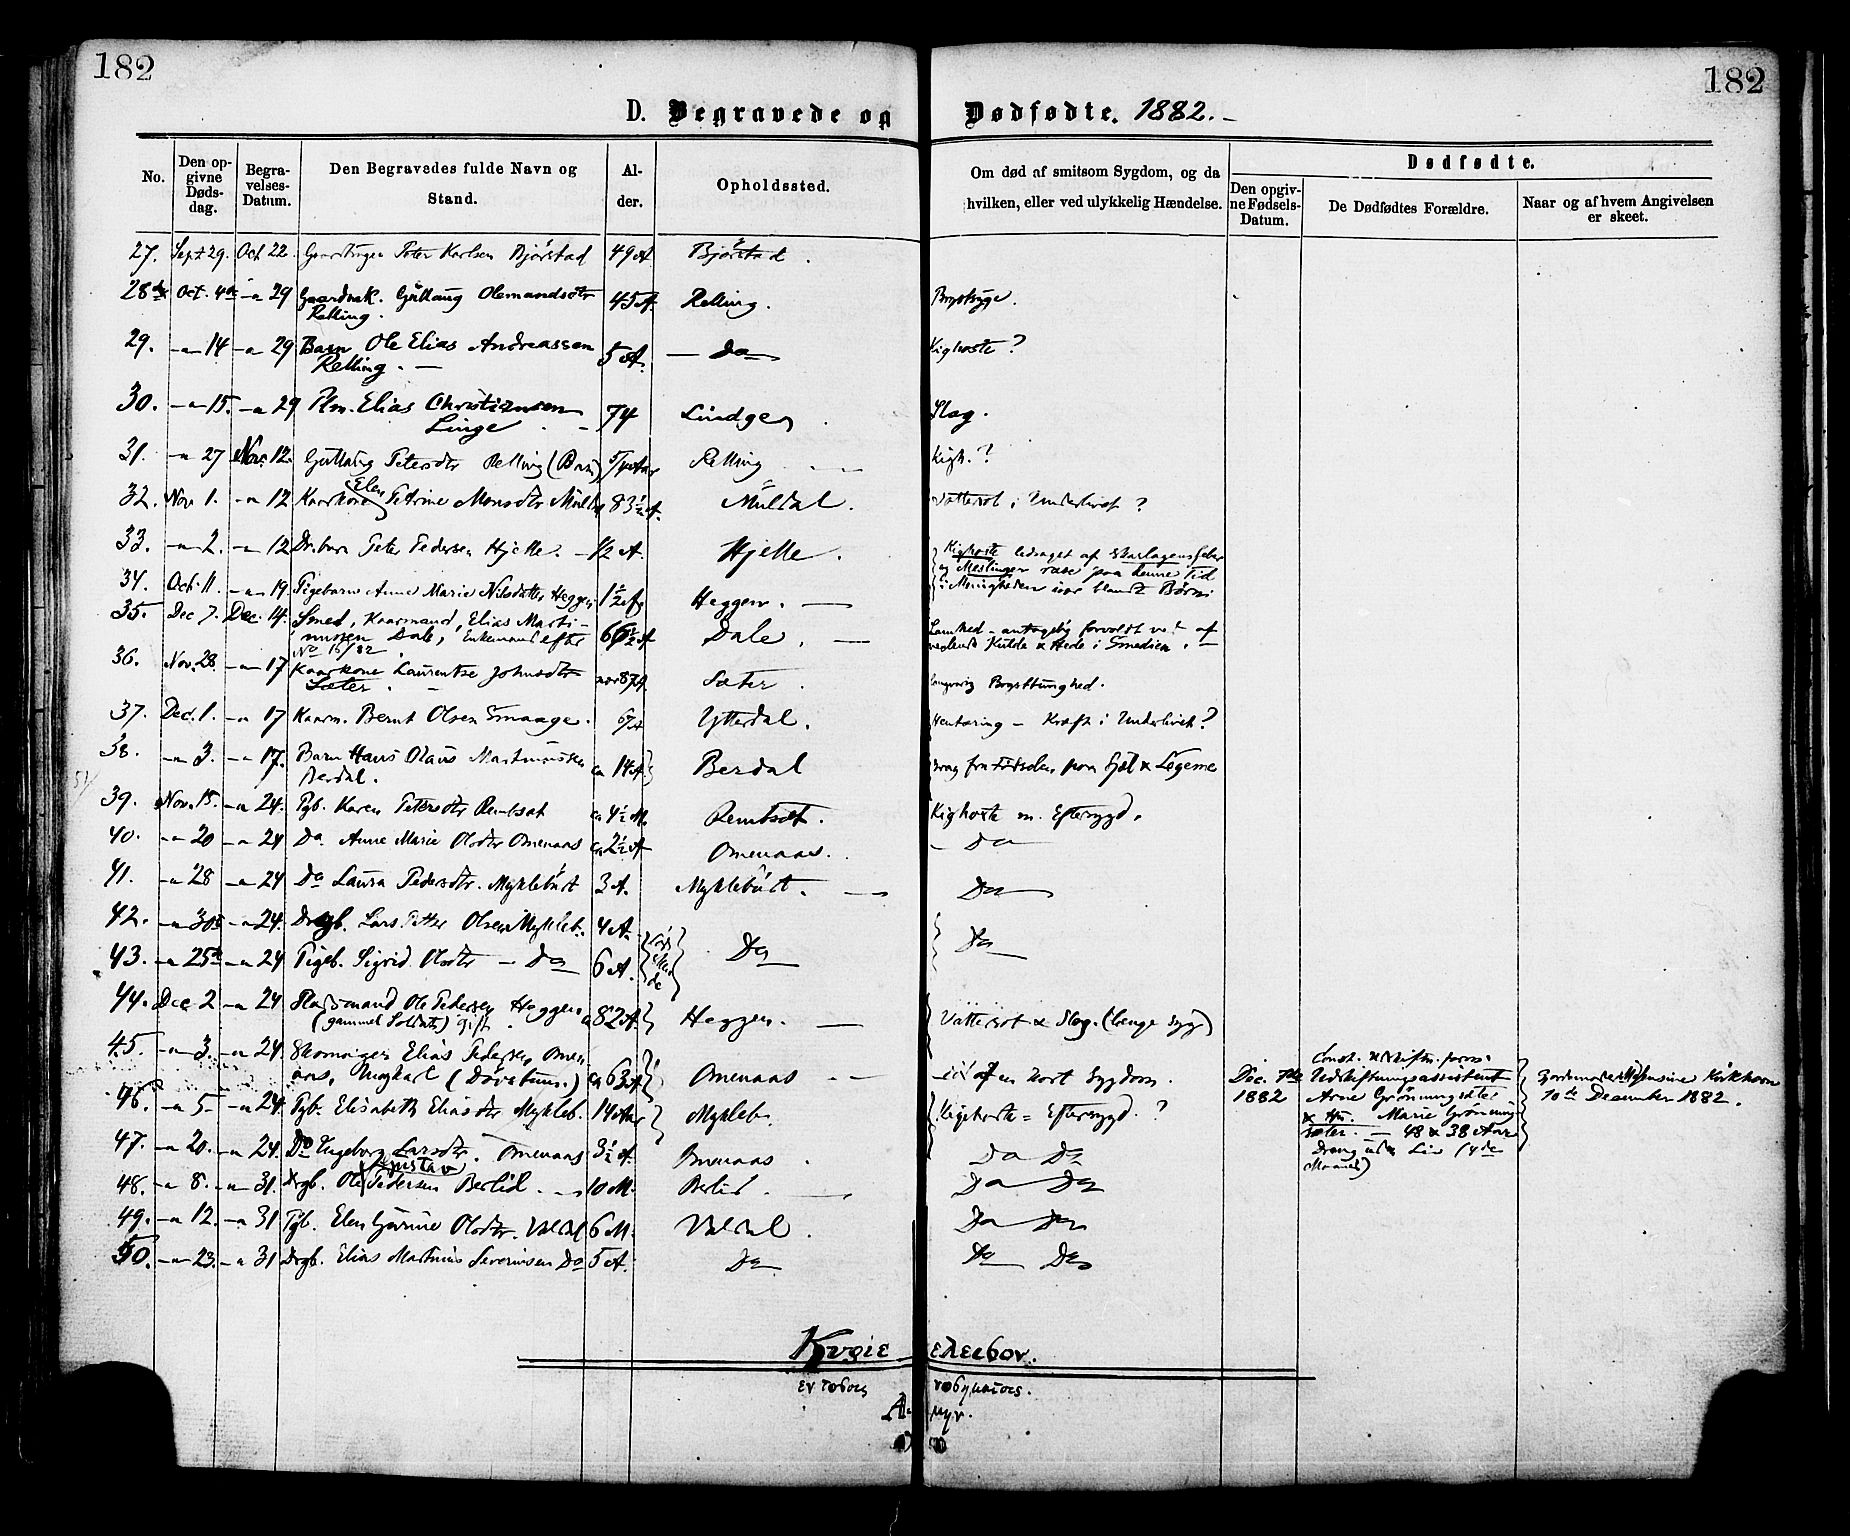 182
182
D. Begravede og Dødfødte. 1882.
No.
Den opgivne Dødsdag.
Begravelses-Datum.
Den Begravedes fulde Navn og Stand.
Alder.
Opholdssted.
Om død af smitsom Sygdom, og da hvilken, eller ved ulykkelig Hændelse.
Dødfødte.
Den opgivne Fødsels-Datum.
De Dødfødtes Forældre.
Naar og af hvem Angivelsen er skeet.
27. Sept 29. Oct 22. Peter Karlsen Bjørstad 49 A. Bjørstad.
28de Oct. 4de -"- 29 Gaardmk. Güllaug Olemandsdtr Relling. 45 A. Relling. Brystsyge.
29. -"- 14 -"- 29 Barn Ole Elias Andreassen Relling. 5 A. Do Kighoste?
30. -"- 15. -"- 29 Plm. Elias Christiansen Linge 74 Lindge Slag.
31. -"- 27 Nov. 12. Güllaug Petersdtr Relling (Barn) Relling Kigh.?
32. Nov 1. -"- 12 Kaarkone Elen Petrine Monsdtr 83½ A. Müldal. Vattersot i Underlivet?
33. -"- 2. -"- 12 Drbarn Peter Pedersen Hjelle. ½ A. Hjelle. Kighoste ledsaget af Skarlagensfeber
og Meslinger rase paa denne Tid
i Menigheden især blandt Børn
34. Oct. 11. -"- 19. Pigebarn Anne Marie Nilsdatter Heggen 1½ A Heggen.
35. Dec 7. Dec. 14. Smed, Kaarmand, Elias Martinusen Dale, Enkemand efter No 16/82. 66½ A Dale. forvoldt ved af
Kulde & Hede i Smedien.
36. Nov. 28. -"- 17 Kaarkone Laurentse Johnsdtr Sæter. 87 A. Sæter. langvarig Brysttunghed.
37. Dec. 1. -"- 17 Kaarm. Bernt Olsen Smaage. 67 A Ytterdal. Hentæring - Kræft i Underlivet?
38. -"- 3. -"- 17. Barn Hans Olaus Martinusen Berdal. ca 14 A. Berdal Svag fra Fødselen paa Sjæl & Legeme
39. Nov. 15. -"- 24. Pgb. Karen Petersdtr Remsæt ca 4½ M. Remtsæt. Kighoste m. Eftersygd.
40. -"- 20 -"- 24 Do Anne Marie Olsdtr Omenaas ca 2½ A Omenaas. Do
41. -"- 28 -"- 24 Do Laura Pedersdtr. Myklebüst 3 A. Myklebüst. Do
42. -"- 30 -"- 24. Drgb. Lars Petter Olsen Mykleb. 4 A.
Do
Do
43. -"- 25 -"- 24 Pigeb. Sigrid Olsdtr Do 6 A.
44. Dec 2 -"- 24 Plasmand Ole Pedersen Heggen (gammel Soldat) gift. 82 A. Heggen. Vattersot & Slag. (længe syg)
45. -"- 3. -"- 24. Skomager Elias Pedersen Omenaas, Ungkarl (Døvstum.) ca 63 A. Omenaas af en kort Sygdom.
46. -"- 5 -"- 24. Pgb. Elisabeth Eliasdtr Mykleb. 14 Aar Mykleb. Kighoste = Eftersygd.?
47. -"- 20. -"- 24. Do Ingeborg Larsdtr. Omenaas 3½ A. Omenaas Do Do
48. -"- 8. -"- 31. Drgb. Ole Gustav Pedersen Berlid. 10 M. Berlid. Do Do
49. -"- 12. -"- 31 Pgb. Elen Gurine Olsdtr. Valdal 6 M. Valdal. Do Do
50. -"- 23. -"- 31 Drgb. Elias Martinus Severinsen Do 5 A. Do Do Do
Dec. 7de 1882
Const.
Udskiftningsassistent
Arne Grønningsæter
& Hu. Marie Grønningsæter. 48 & 38 Aar
Dreng uden Liv (4de Maaned)
Gjordemoder Kirkhorn
10de December 1882.
Κυριε ελεισον.
Α. μην.